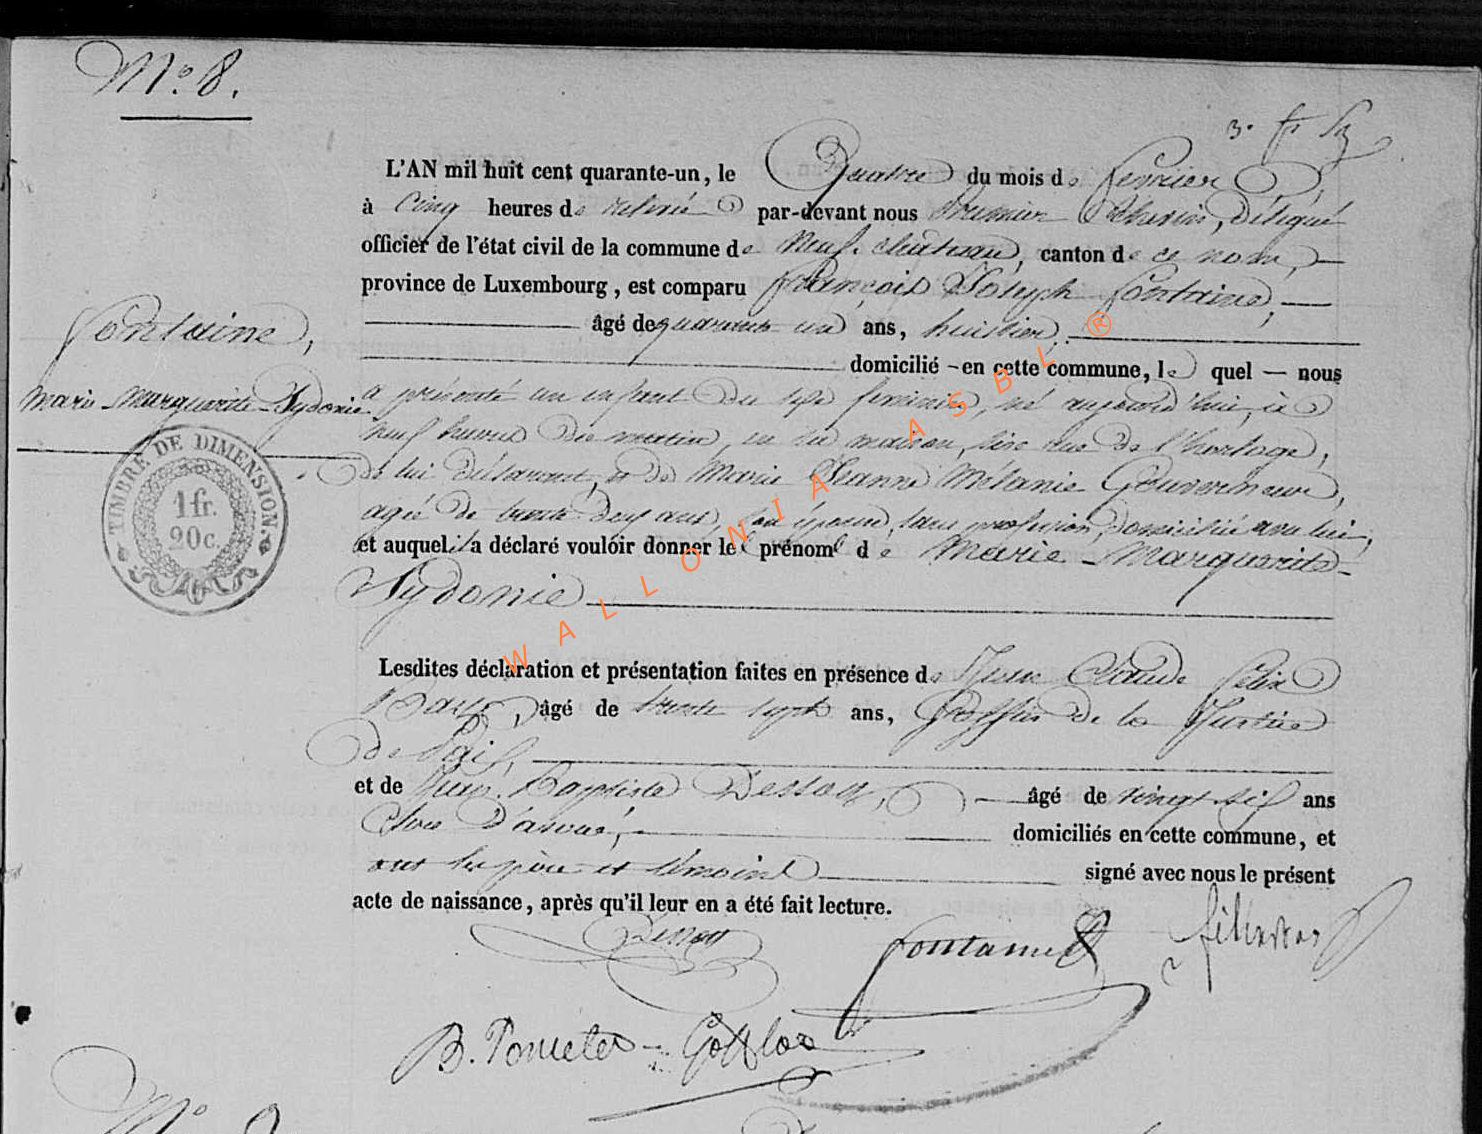 N.º 8.
L'AN mil huit cent quarante-un, le Quatre du mois de fevrier
à cinq heures de relevée par-devant nous Premier Echevin, délégué
officier de l'état civil de la commune de Neufchateau, canton de ce nom,
province de Luxembourg, est comparu françois Joseph fontaine,
âgé de quarante un ans, huissier,
domicilié en cette commune, lequel nous
fontaine,
Marie Marguerite Sydonie.
a présenté un enfant du sexe feminin, né aujourd'hui, à
neuf heures du matin, en sa maison, sise rue de l'horloge,
de lui déclarant, et de Marie Jeanne Mélanie Gouverneur,
agée de trente deux ans, son épouse, sans profession, domiciliée avec lui,
et auquel il a déclaré vouloir donner les prénoms de Marie-Marguerite-
Sydonie
TIMBRE DE DIMENSION
1 fr.
20 c.
Lesdites déclaration et présentation faites en présence de Jean Claude Félix
âgé de trente sept ans, Greffier de la Justice
de Paix,
et de Jean Baptiste Dessoy, âgé de vingt six ans
Clerc d'avoué, domiciliés en cette commune, et
ont les père et témoins signé avec nous le présent
acte de naissance, après qu'il leur en a été fait lecture.
fontaine
WALLONIA ASBL ®